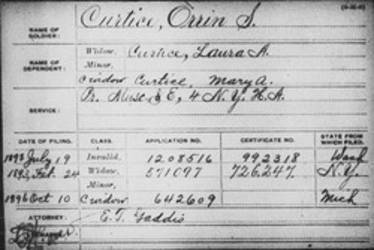 (3-33-0)
NAME OF SOLDIER: Curtice, Orrin S.
NAME OF DEPENDENT: Widow, Curtice, Laura A.
Minor,
C widow Curtice, Mary A.
SERVICE: Pr. Musc. & E, 4 N.Y. H.A.
DATE OF FILING. CLASS. APPLICATION NO. CERTIFICATE NO. STATE FROM WHICH FILED.
1898 July 19 Invalid, 1208516 992318 Wash
1893 Feb. 24 Widow, 571097 726.247. N.Y.
Minor,
1896 Oct 10 C widow 642609 Mich
ATTORNEY: E. T. Gaddis